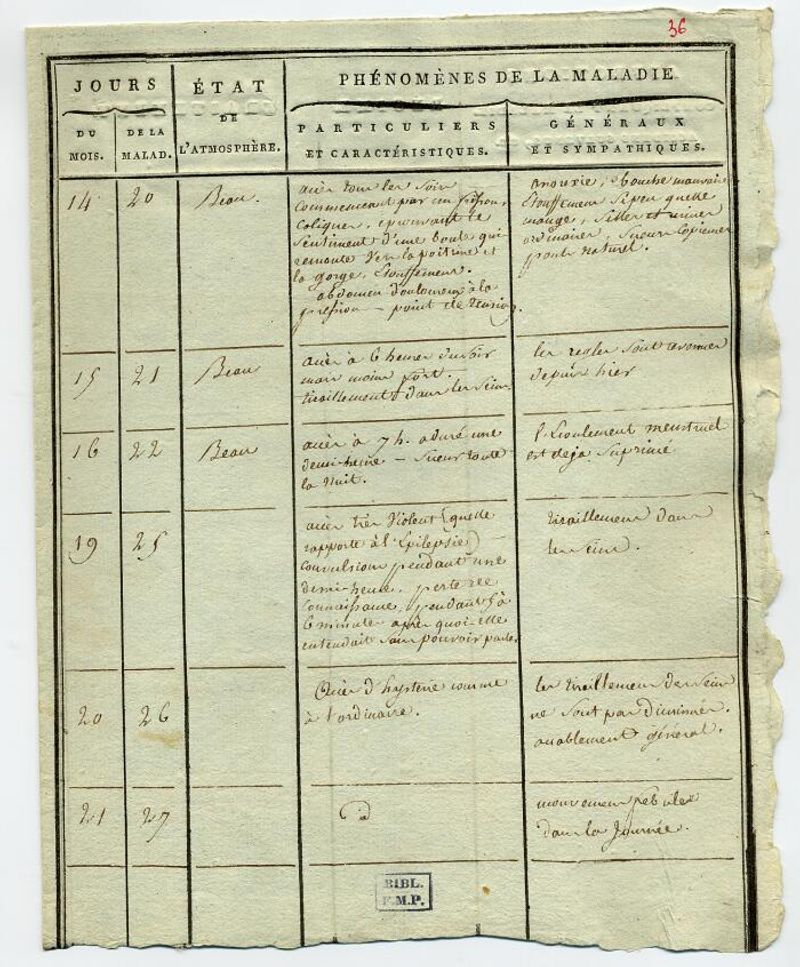 36
JOURS
ÉTAT
PHÉNOMÈNES DE LA MALADIE
DU
MOIS.
DE LA
MALAD.
DE
L'ATMOSPHÈRE.
PARTICULIERS
ET CARACTÉRISTIQUES.
GÉNÉRAUX
ET SYMPATHIQUES.
14
20
Beau.
accès tous les soirs
commencant par un frisson,
coliques, eprouvant le
sentiment d'une boule qui
remonte vers la poitrine et
la gorge, Étouffement.
abdomen douloureux à la
pression – point de tension.
anorexie, bouche mauvaise
Étouffement si peu quelle
mange, selles et urines
ordinaires, sueurs copieuses
pouls naturel.
15
21
Beau
accès à 6 heures du soir
mais moins fort.
tiraillements dans les seins
les regles sont avenues
depuis hier
16
22
Beau
accès à 7 h. a duré une
demi-heure – sueur toute
la nuit.
l'Ecoulement menstruel
est deja suprimé
19
25
accès très violent (quelle
rapporte à l'Epilepsie)
convulsions pendant une
demi-heure, perte de
connaissance, pendant 5 à
6 minutes après quoi elle
entendait sans pouvoir parler.
tiraillemens dans
les seins.
20
26
Accès d'hysterie comme
à l'ordinaire.
les tiraillemens des seins
ne sont pas diminués.
accablement général.
21
27
id
mouvemens fébriles
dans la journée.
BIBL.
F.M.P.